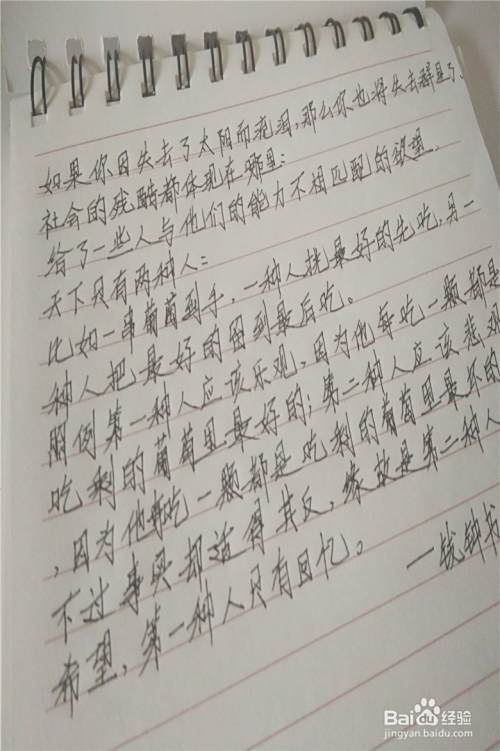 如果你因失去了太阳而流泪，那么你也将失去群星了、
社会的残酷都体现在哪里：
给了一些人与他们的能力不相匹配的欲望．
天下只有两种人：
比如一串葡萄到手，一种人挑最好的先吃，另一
种人把最好的留到最后吃。
照例第一种人应该乐观，因为他每吃一颗都是
吃剩的葡萄里最好的；第二种人应该悲观
，因为他每吃一颗都是吃剩的葡萄里最坏的
不过事实却适得其反，缘故是第二种人
希望，第一种人只有回忆。 一钱钟书
Baidu经验
jingyan.baidu.com